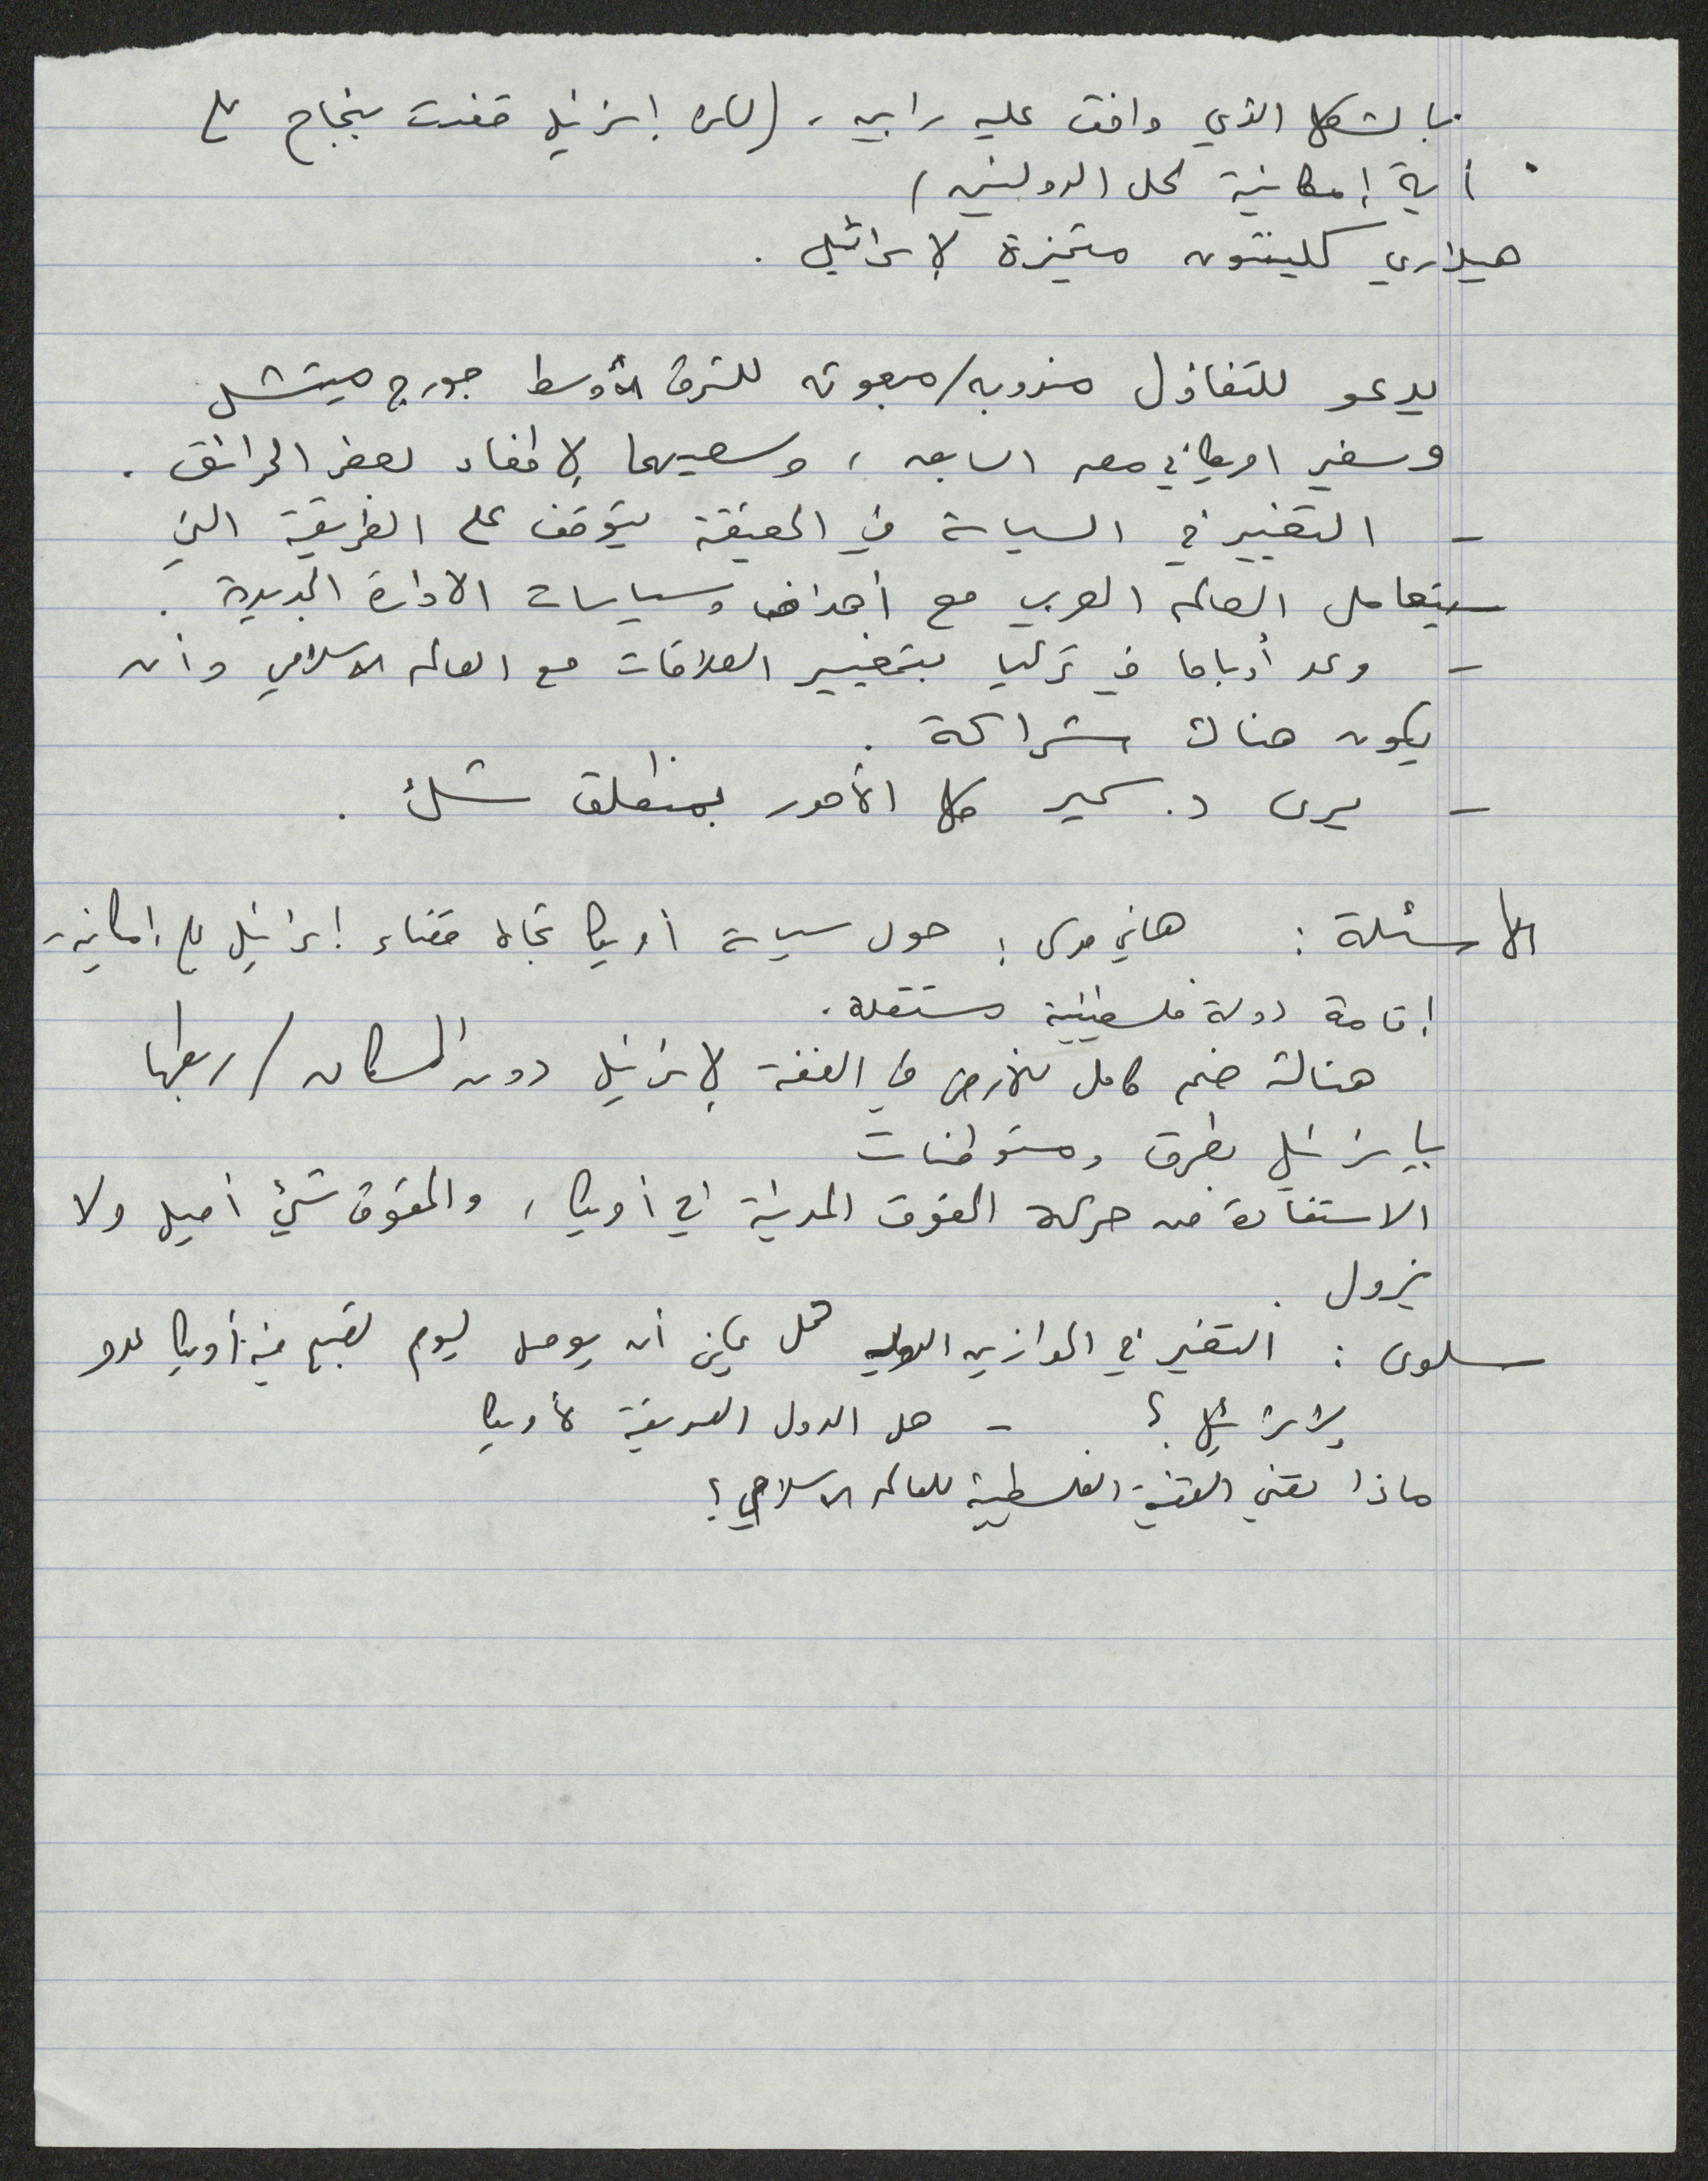 بالشكل الذي وافق عليه رابين، (لكن إسرائيل قضت بنجاح على
أية إمكانية لحل الدولتين)
هيلاري كلينتون متحيزة لإسرائيل.
يدعو للتفاؤل مندوبه/مبعوثه للشرق الأوسط جورج ميتشل
وسفير امريكا في مصر السابق، وسعيهما لإطفاء بعض الحرائق.
- التغيير في السياسة في الحقيقة يتوقف على الطريقة التي
سيتعامل العالم العربي مع أهداف وسياسات الادارة الجديدة.
- وعد أوباما في تركيا بتغيير العلاقات مع العالم الاسلامي وأن
يكون هناك شراكة.
- يرى د. سمير كل الأمور بمنطلق شك.
الأسئلة: هاني : حول سياسة أمريكا تجاه قضاء إسرائيل على إمكانية
إقامة دولة فلسطينية مستقلة.
هناك ضم كامل للأرض في الضفة لإسرائيل دون السكان/ربطها
بإسرائيل بطرق ومستوطنات
الاستفادة من حركة الحقوق المدنية في أمريكا، والحقوق شيء أصيل ولا
يزول.
سلوى: التغير في الموازين الدولية هل يمكن أن يوصل ليوم تصبح فيه أمريكا عدو
لإسرائيل؟ - هل الدول الصديقة لأمريكا
ماذا تعني القضية الفلسطينية للعالم الاسلامي؟